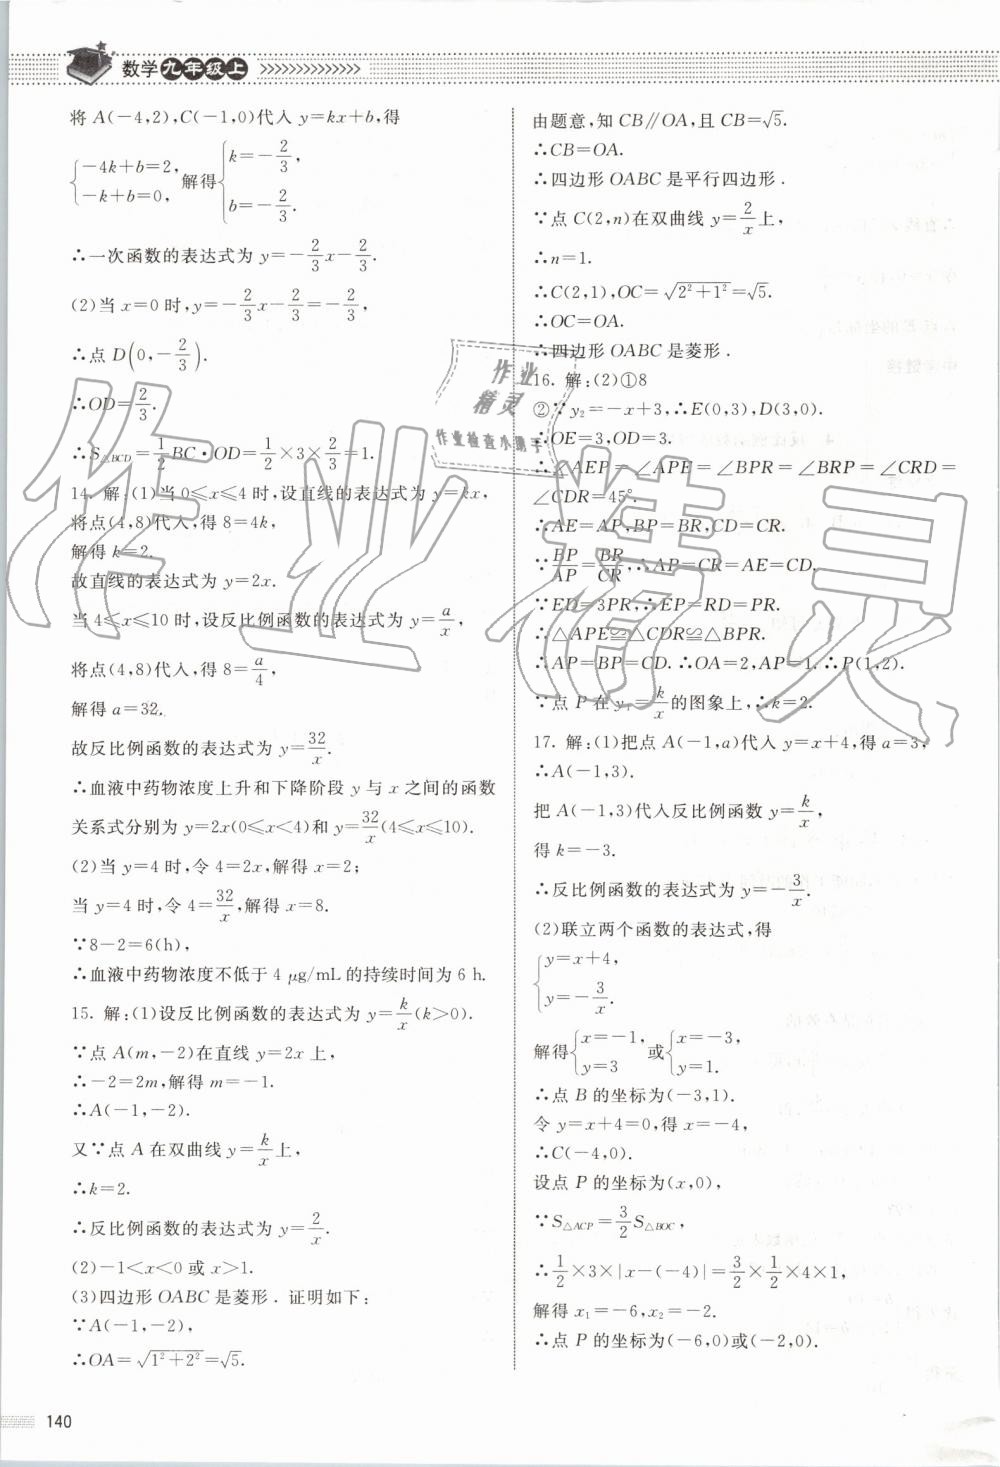 数学九年级上
将 A(－4,2),C(－1,0)代入 y＝kx＋b,得
{－4k＋b＝2, －k＋b＝0, 解得{k＝－2/3, b＝－2/3.
∴一次函数的表达式为 y＝－2/3x－2/3.
(2)当 x＝0 时,y＝－2/3x－2/3＝－2/3,
∴点 D(0,－2/3).
∴OD＝2/3.
∴S△BCD＝1/2BC·OD＝1/2×3×2/3＝1.
14. 解:(1)当 0≤x≤4 时,设直线的表达式为 y＝kx,
将点(4,8)代入,得 8＝4k,
解得 k＝2.
故直线的表达式为 y＝2x.
当 4≤x≤10 时,设反比例函数的表达式为 y＝a/x,
将点(4,8)代入,得 8＝a/4,
解得 a＝32.
故反比例函数的表达式为 y＝32/x.
∴血液中药物浓度上升和下降阶段 y 与 x 之间的函数
关系式分别为 y＝2x(0≤x<4)和 y＝32/x(4≤x≤10).
(2)当 y＝4 时,令 4＝2x,解得 x＝2;
当 y＝4 时,令 4＝32/x,解得 x＝8.
∵8－2＝6(h),
∴血液中药物浓度不低于 4 μg/mL 的持续时间为 6 h.
15. 解:(1)设反比例函数的表达式为 y＝k/x(k>0).
∵点 A(m,－2)在直线 y＝2x 上,
∴－2＝2m,解得 m＝－1.
∴A(－1,－2).
又∵点 A 在双曲线 y＝k/x上,
∴k＝2.
∴反比例函数的表达式为 y＝2/x.
(2)－1<x<0 或 x>1.
(3)四边形 OABC 是菱形. 证明如下:
∵A(－1,－2),
∴OA＝√(1²＋2²)＝√5.
由题意,知 CB∥OA,且 CB＝√5.
∴CB＝OA.
∴四边形 OABC 是平行四边形.
∵点 C(2,n)在双曲线 y＝2/x上,
∴n＝1.
∴C(2,1),OC＝√(2²＋1²)＝√5.
∴OC＝OA.
∴四边形 OABC 是菱形.
16. 解:(2)①8
②∵y₂＝－x＋3,∴E(0,3),D(3,0).
∴OE＝3,OD＝3.
∴∠AEP＝∠APE＝∠BPR＝∠BRP＝∠CRD＝
∠CDR＝45°.
∴AE＝AP,BP＝BR,CD＝CR.
∵BP/AP＝BR/CR,∴AP＝CR＝AE＝CD.
∵ED＝3PR,∴EP＝RD＝PR.
∴△APE≌△CDR≌△BPR.
∴AP＝BP＝CD.∴OA＝2,AP＝1.∴P(1,2).
∵点 P 在 y₁＝k/x的图象上,∴k＝2.
17. 解:(1)把点 A(－1,a)代入 y＝x＋4,得 a＝3,
∴A(－1,3).
把 A(－1,3)代入反比例函数 y＝k/x,
得 k＝－3.
∴反比例函数的表达式为 y＝－3/x.
(2)联立两个函数的表达式,得
{y＝x＋4, y＝－3/x.
解得{x＝－1, y＝3 或{x＝－3, y＝1.
∴点 B 的坐标为(－3,1).
令 y＝x＋4＝0,得 x＝－4,
∴C(－4,0).
设点 P 的坐标为(x,0),
∵S△ACP＝3/2S△BOC,
∴1/2×3×|x－(－4)|＝3/2×1/2×4×1,
解得 x₁＝－6,x₂＝－2.
∴点 P 的坐标为(－6,0)或(－2,0).
140
作业精灵
作业
精灵
作业检查小帮手